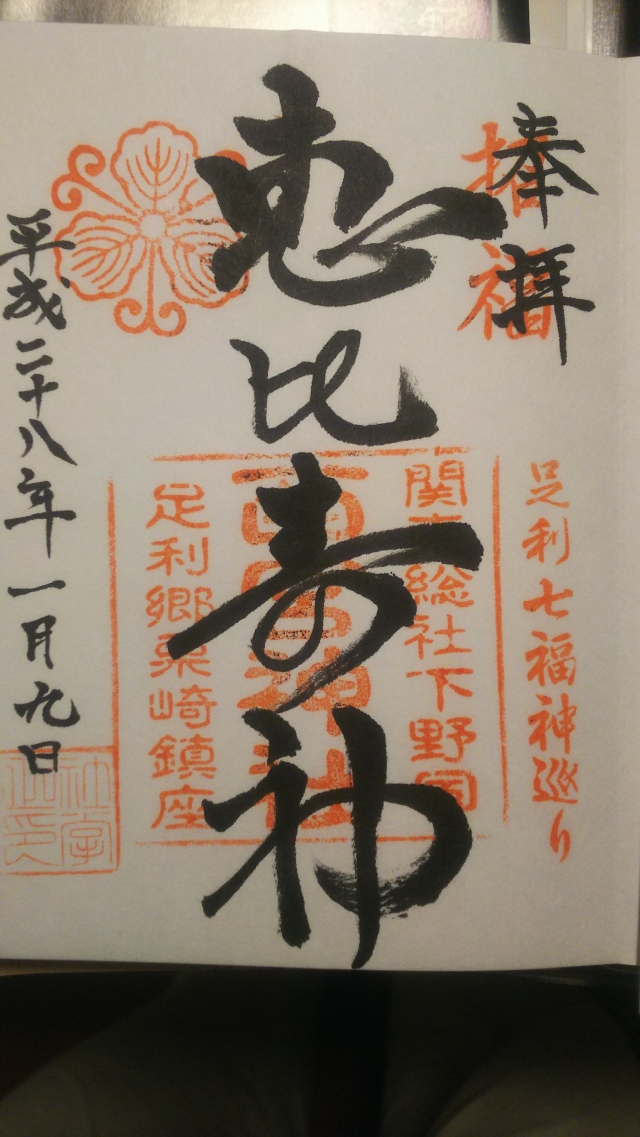 奉拝
招福
足利七福神巡り
恵比寿神
関東総社下野国
西宮神社
足利郷栗崎鎮座
平成二十八年一月九日